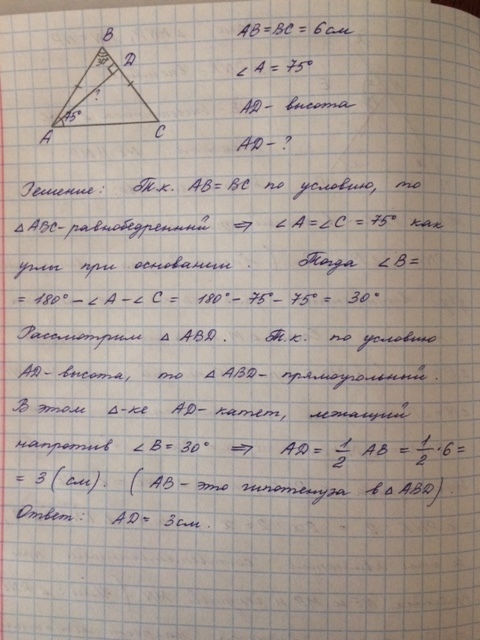 B
30°
D
?
75°
A
C
AB = BC = 6 см
∠A = 75°
AD - высота
AD - ?
Решение: Т.к. AB = BC по условию, то
△ABC - равнобедренный ⇒ ∠A = ∠C = 75° как
углы при основании. Тогда ∠B =
= 180° - ∠A - ∠C = 180° - 75° - 75° = 30°
Рассмотрим △ABD. Т.к. по условию
AD - высота, то △ABD - прямоугольный.
В этом △-ке AD - катет, лежащий
напротив ∠B = 30° ⇒ AD = 1/2 AB = 1/2 · 6 =
= 3 (см). (AB - это гипотенуза в △ABD).
Ответ: AD = 3 см.